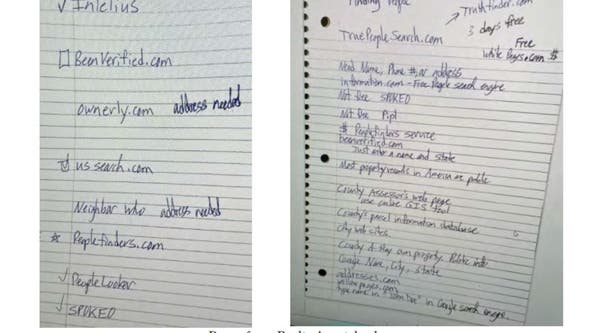 ✓ Intelius
BeenVerified.com
ownerly.com address needed
us search.com
Neighbor Who address needed
☆ Peoplefinders.com
✓ PeopleLooker
✓ SPOKEO
Finding People
Truthfinder.com
3 days free
TruePeopleSearch.com
Free
White Pages.com $
Need Name, Phone #, or address
information.com - Free People search engine
Not free SPOKEO
Not free Pipl
$ Peoplefinders service
beenverified.com
Just enter a name and state
Most property records in America are public
County Assessor's web page
use online GIS tool
County's parcel information database
City web sites.
County A they own property. Public info
Google Name, City, State
addresses.com
yellowpages.com
type name in "John Doe" in Google search engine.